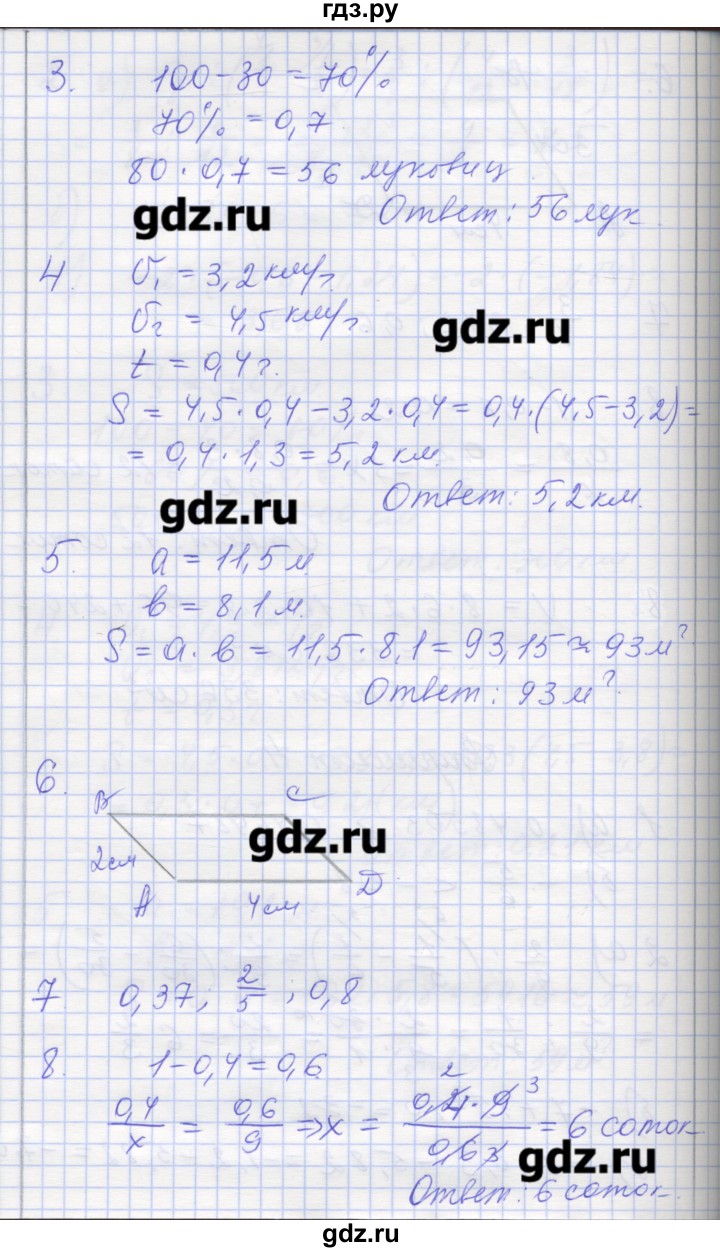 гдз.ру
3. 100 - 30 = 70%
70% = 0,7
80 · 0,7 = 56 луковиц.
gdz.ru
Ответ: 56 лук.
4. V₁ = 3,2 км/г
V₂ = 4,5 км/г.
gdz.ru
t = 0,4 г.
S = 4,5 · 0,4 - 3,2 · 0,4 = 0,4 · (4,5 - 3,2) =
= 0,4 · 1,3 = 5,2 км.
Ответ: 5,2 км.
gdz.ru
5. a = 11,5 м
в = 8,1 м.
S = a · в = 11,5 · 8,1 = 93,15 ≈ 93 м².
Ответ: 93 м².
6.
B C
gdz.ru
2 см
A 4 см D
7. 0,37; 2/5; 0,8
8. 1 - 0,4 = 0,6
0,4/x = 0,6/9 => x = 0,4 · 9/0,6 = 6 соток
2 3
gdz.ru
Ответ: 6 соток.
gdz.ru